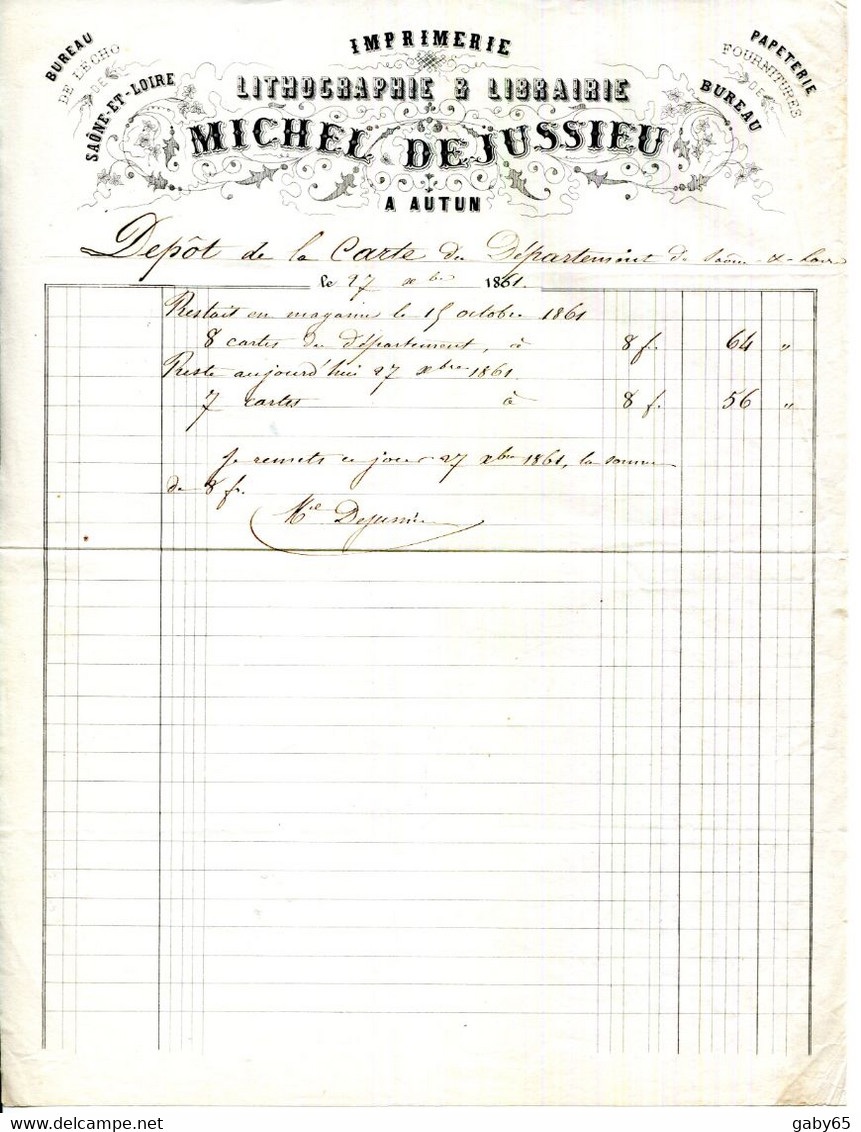 BUREAU
DE L'ECHO
DE
SAÔNE-ET-LOIRE
IMPRIMERIE
LITHOGRAPHIE & LIBRAIRIE
MICHEL DEJUSSIEU
A AUTUN
PAPETERIE
FOURNITURES
DE
BUREAU
Depôt de la Carte du Département de Saône-&-Loire
le 27 xbre 1861.
Restait en magasin le 15 octobre 1861
8 cartes du département, à 8 f. 64 "
Reste aujourd'hui 27 xbre 1861.
7 cartes à 8 f. 56 "
Je remets ce jour 27 xbre 1861, la somme
de 8 fr.
Mel Dejussieu
gaby65